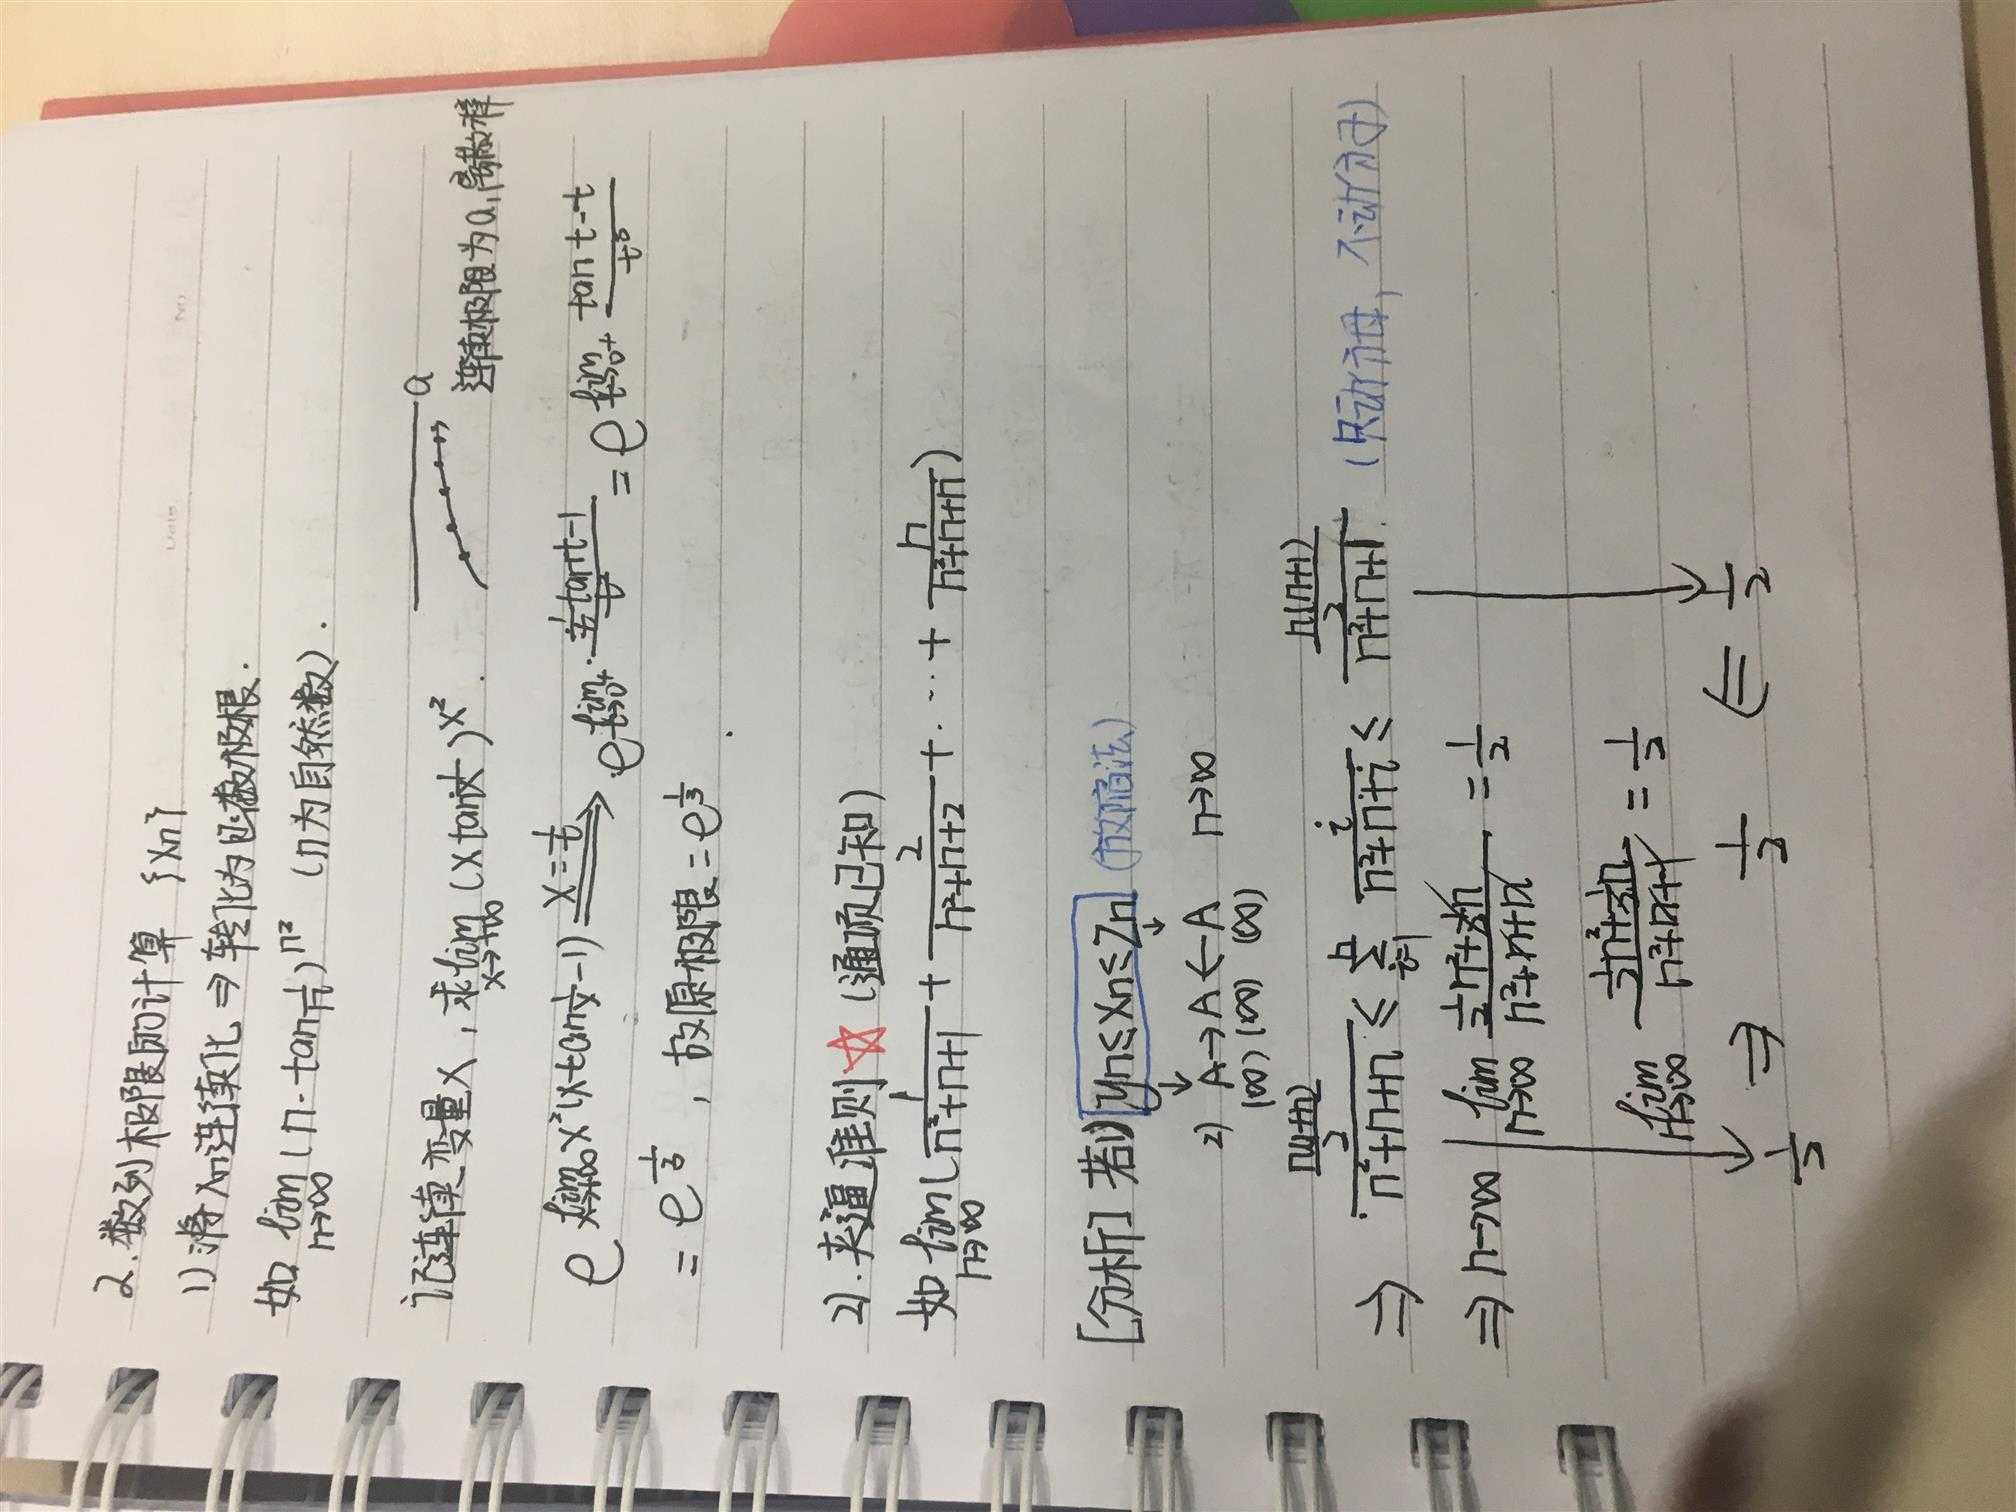 2. 数列极限的计算 {Xn}
1) 将Xn连续化 ⇒ 转化为函数极限.
如 lim n→∞ (n·tan 1/n)^n² (n为自然数).
a
连续极限为a,离散样
记连续变量X, 求 lim x→+∞ (x tan 1/x)^x².
e^(lim x→+∞ x²(x tan 1/x -1)) ⟹(x=1/t) e^(lim t→0+ (1/t · tan t -1)/t²) = e^(lim t→0+ (tan t - t)/t³)
= e^(1/3), 故原极限 = e^(1/3)
2). 夹逼准则☆ (通项已知)
如 lim n→∞ (1/(n²+n+1) + 2/(n²+n+2) + ··· + n/(n²+n+n))
[分析] 若1) yn ≤ Xn ≤ Zn (放缩法)
2) A → A ← A n→∞
(∞) (∞) (∞)
⇒ (n(1+n)/2)/(n²+n+n) ≤ Σ i=1 n i/(n²+n+i) ≤ (n(n+1)/2)/(n²+n+1) (只动分母, 不动分子)
⇒ n→∞ lim n→∞ (½n²+½n)/(n²+n+n) = 1/2
lim n→∞ (½n²+½n)/(n²+n+1) = 1/2
1/2 ⇒ 1/2 ⇐ 1/2